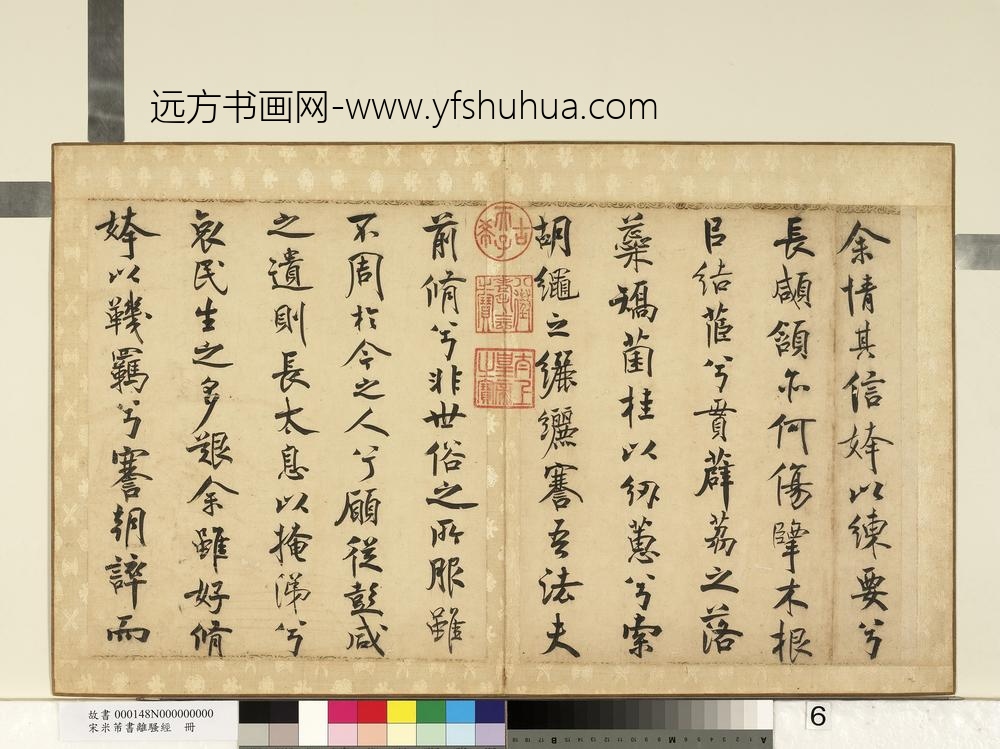 远方书画网-www.yfshuhua.com
余情其信姱以練要兮
長顑頷亦何傷擥木根
㠯結茝兮貫薜荔之落
蘂矯菌桂以紉蕙兮索
胡繩之纚纚謇吾法夫
前脩兮非世俗之所服雖
不周於今之人兮願從彭咸
之遺則長太息以掩涕兮
哀民生之多艱余雖好脩
姱以鞿羈兮謇朝誶而
古希天子
八徵耄念之寶
太上皇帝之寶
故書 000148N000000000
宋米芾書離騷經 冊
6